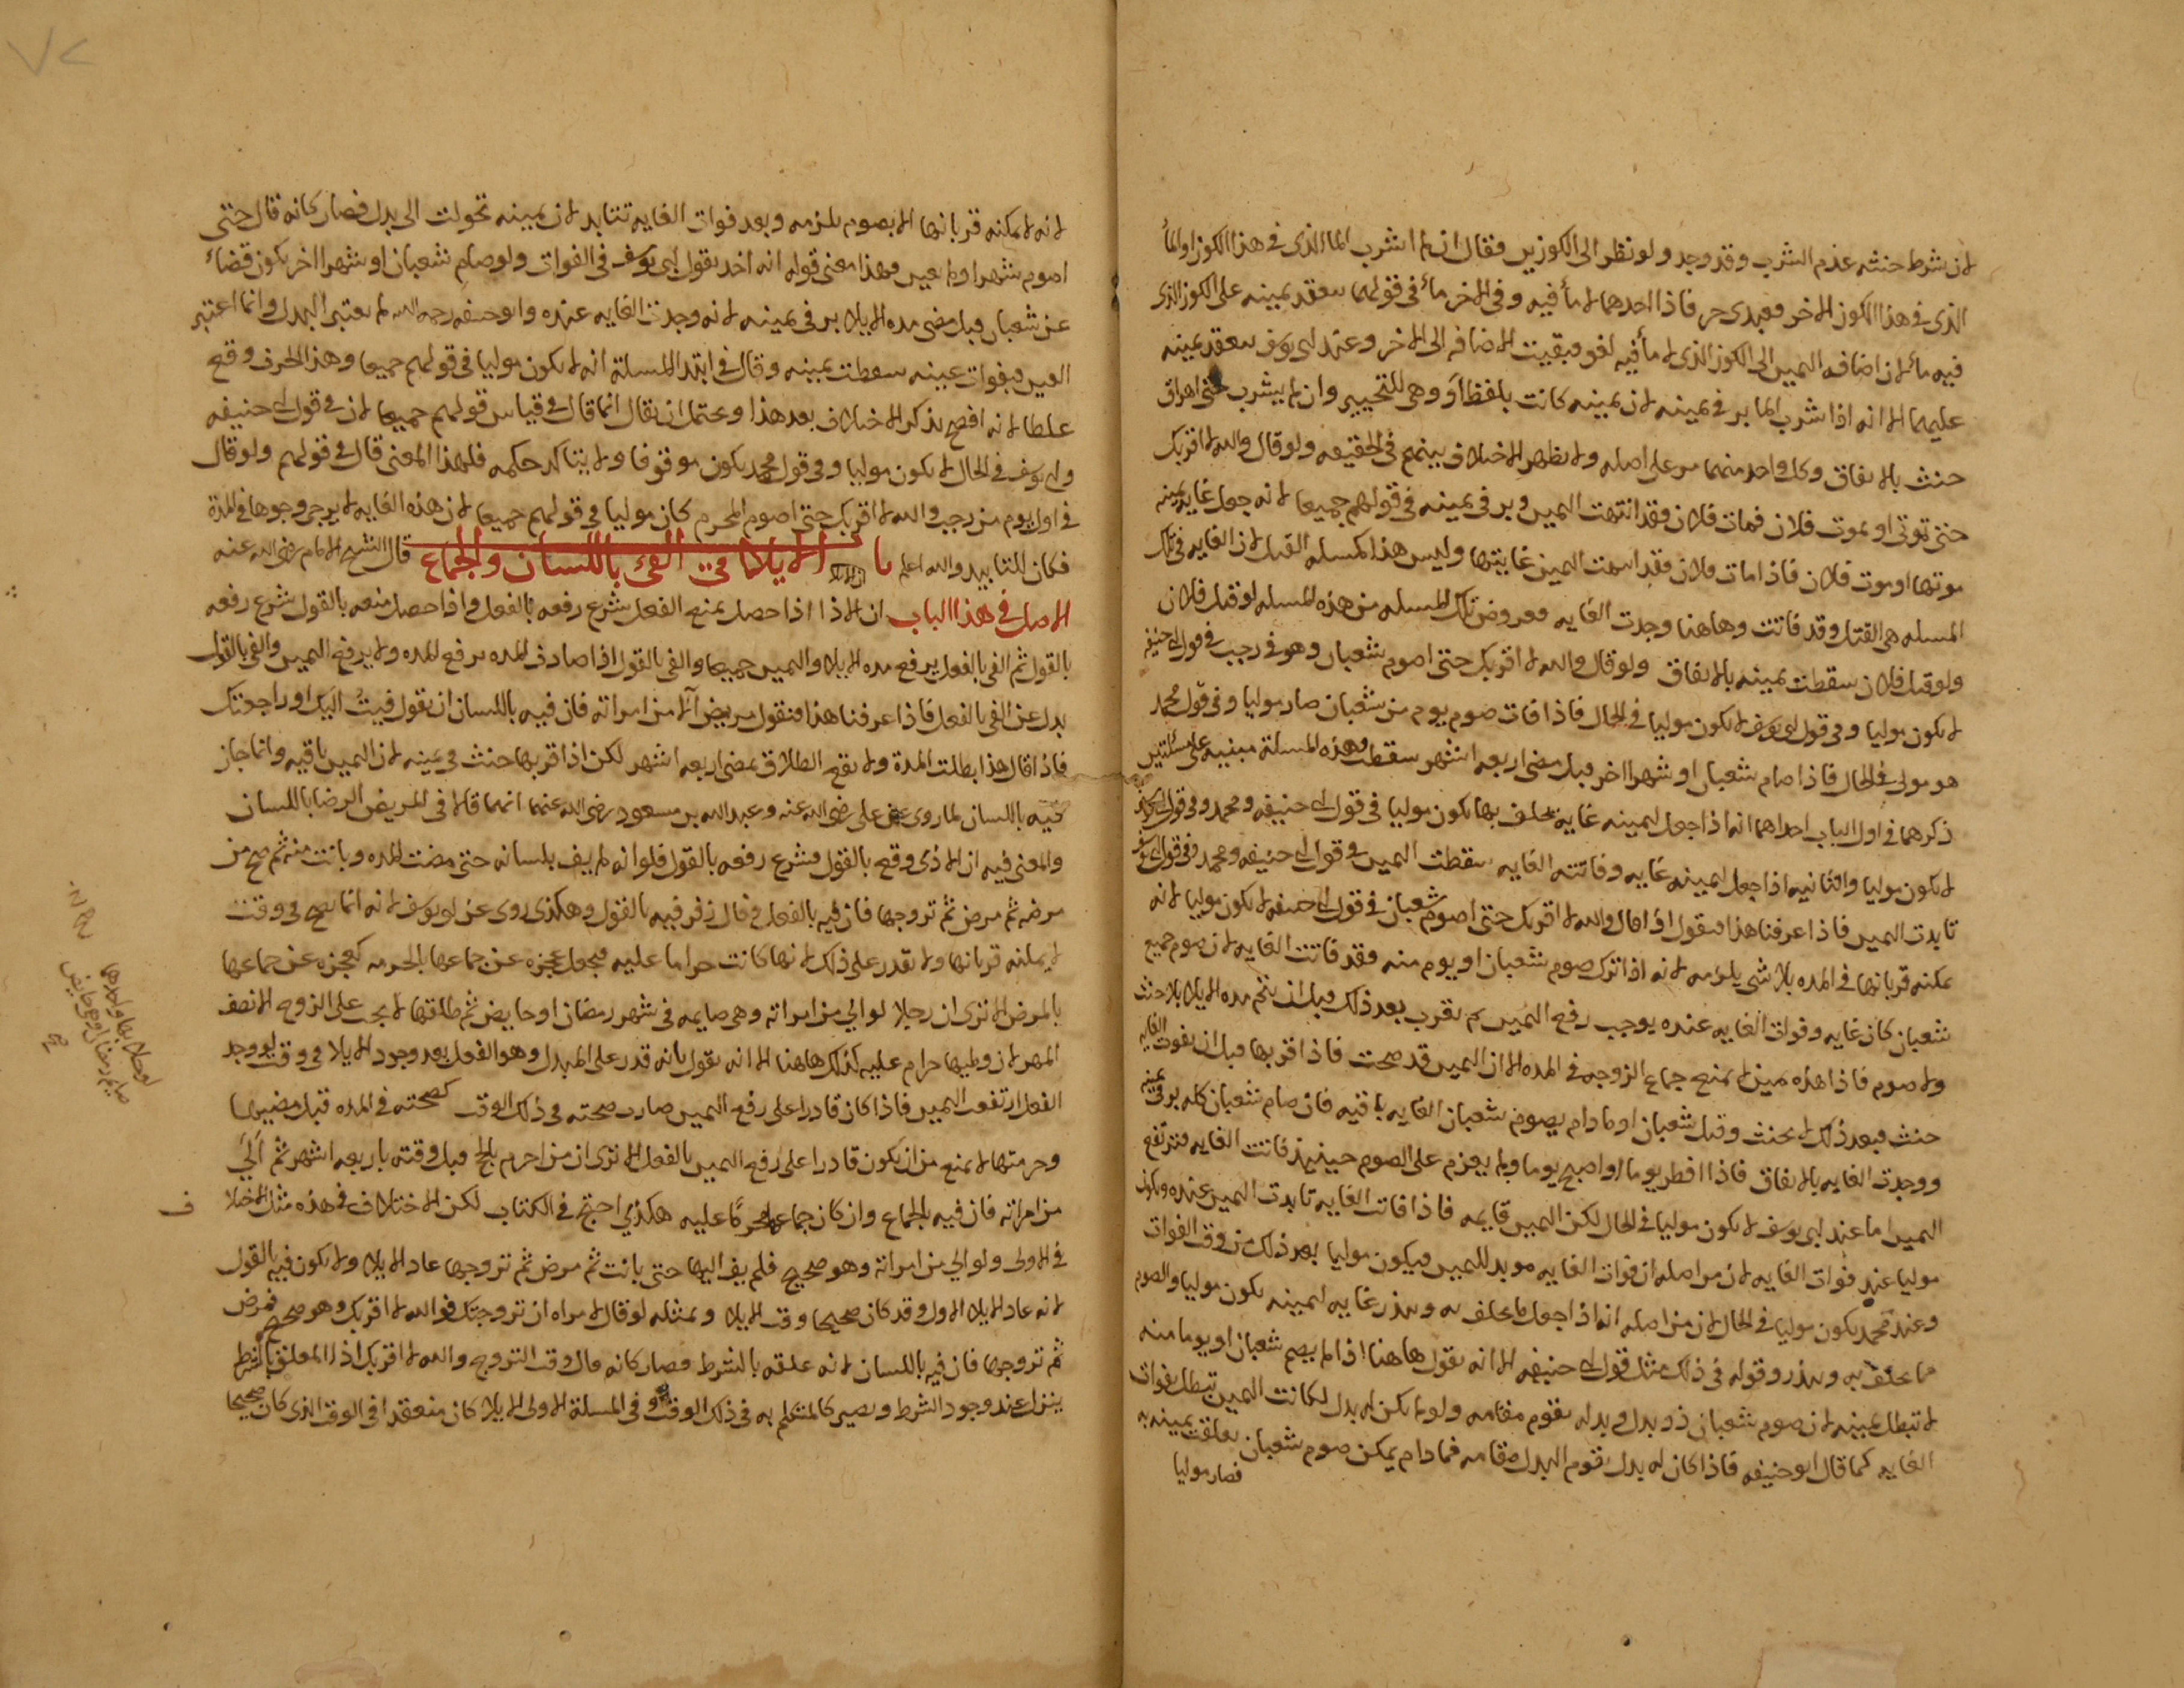 لان شرط حنثه عدم الشرب وقد وجد ولو نظر الى الكوزين فقال ان لم اشرب الما الذى فى هذا الكوز او الماء
الذى فى هذا الكوز الاخر فعبدى حر فاذا احدهما لا ماء فيه وفى الاخر ماء فى قولهما ينعقد يمينه على الكوز الذى
فيه ماء لان اضافه اليمين الى الكوز الذى لا ماء فيه لغو فبقيت الاضافه الى الاخر وعند ابى يوسف ينعقد يمينه
عليهما الا انه اذا شرب الما بر فى يمينه لان يمينه كانت بلفظ او وهى للتخيير وان لم يشرب حتى اهراق
حنث بالاتفاق وكل واحد منهما مر على اصله ولا يظهر الاختلاف بينهم فى الحقيقه ولو قال والله لا اقربك
حتى توتى او يموت فلان فمات فلان فقد انتهت اليمين وبر فى يمينه فى قولهم جميعا لانه جعل غايه يمينه
موتها او موت فلان فاذا مات فلان فقد انتهت اليمين غايتها وليس هذا كمسله القتل لان الغايه فى تلك
المسله هى القتل وقد فاتت وهاهنا وجدت الغايه فعروض تلك المسله من هذه المسله لو قتل فلان
ولو قتل فلان سقطت يمينه بالاتفاق ولو قال والله لا اقربك حتى اصوم شعبان وهو فى رجب فى قول ابى حنيفه
لا يكون موليا وفى قول ابى يوسف لا يكون موليا فى الحال فاذا فات صوم يوم من شعبان صار موليا وفى قول محمد
هو مولى فى الحال فاذا صام شعبان او شهرا اخر قبل مضى اربعه اشهر سقطت وهذه المسلة مبنيه على مسئلتين
ذكرهما فى اول الباب احداهما انه اذا جعل ليمينه غايه يحلف بها يكون موليا فى قول ابى حنيفه ومحمد وفى قول ابى يوسف
لا يكون موليا والثانيه اذا جعل ليمينه غايه وفاتته الغايه سقطت اليمين فى قول ابى حنيفه ومحمد وفى قول ابى يوسف
تابدت اليمين فاذا عرفنا هذا فنقول اذا قال والله لا اقربك حتى اصوم شعبان فى قول ابى حنيفه لا يكون موليا لانه
يمكنه قربانها فى المده بلا شى يلزمه لانه اذا ترك صوم شعبان او يوم منه فقد فاتت الغايه لان صوم جميع
شعبان كان غايه وفوات الغايه عنده يوجب رفع اليمين ثم يقرب بعد ذلك قبل ان يتم مده الايلا بلا حنث
ولا صوم فاذا هذه يمين لا تمنع جماع الزوجه فى المده الا ان اليمين قد صحت فاذا قربها قبل ان يفوت الغايه
حنث وبعد ذلك لا يحنث وقبل شعبان او ما دام يصوم شعبان الغايه باقيه فان صام شعبان كله بر فى يمينه
ووجدت الغايه بالاتفاق فاذا افطر يوما او اصبح يوما ولم يعزم على الصوم حينئذ فاتت الغايه فترتفع
اليمين اما عند ابى يوسف لا يكون موليا فى الحال لكن اليمين قايمه فاذا فاتت الغايه تابدت اليمين عنده ويكون
موليا عند فوات الغايه لان من اصله ان فوات الغايه موبد لليمين فيكون موليا بعد ذلك من وقت الفوات
وعند محمد يكون موليا فى الحال لان من اصله انه اذا جعل ما يحلف به وينذر غايه ليمينه يكون موليا والصوم
ما يحلف به وينذر وقوله فى ذلك مثل قول ابى حنيفه الا انه يقول هاهنا اذا لم يصم شعبان او يوما منه
لا تبطل يمينه لان صوم شعبان ذو بدل وبدله يقوم مقامه ولو لم يكن له بدل لكانت اليمين تبطل بفوات
الغايه كما قال ابو حنيفه فاذا كان له بدل يقوم البدل مقامه فما دام يمكن صوم شعبان تعلقت يمينه به
فصار موليا
لانه لا يمكنه قربانها الا بصوم يلزمه وبعد فوات الغايه تتابد لان يمينه تحولت الى بدل فصار كانه قال حتى
اصوم شهرا ولم يعين وهذا معنى قوله انه اخذ بقول ابى يوسف فى الفوات ولو صام شعبان او شهرا اخر يكون قضاء
عن شعبان قبل مضى مده الايلا بر فى يمينه لانه وجدت الغايه عنده وابو حنيفه رحمه الله لم يعتبر البدل وانما اعتبر
العين فبفوات عينه سقطت يمينه وقال فى ابتدا المسلة انه لا يكون موليا فى قولهم جميعا وهذا الحرف وقع
غلطا لانه افصح بذكر الاختلاف بعد هذا ويحتمل ان يقال انما قال فى قياس قولهم جميعا لان فى قول ابى حنيفه
وابى يوسف فى الحال لا يكون موليا وفى قول محمد يكون موقوفا ولا يتاكد حكمه فلهذا المعنى قال فى قولهم ولو قال
فى اول يوم من رجب والله لا اقربك حتى اصوم المحرم كان موليا فى قولهم جميعا لان هذه الغايه لا يرجى وجودها فى المدة
فكان للتابيد والله اعلم با الايلا فى الفئ باللسان والجماع قال الشيخ الامام رضى الله عنه
الاصل فى هذا الباب ان الاذا اذا حصل بمنع الفعل شرع رفعه بالفعل واذا حصل منعه بالقول شرع رفعه
بالقول ثم الفى بالفعل يرفع مده الايلا واليمين جميعا والفى بالقول اذا صادف المده يرفع المده ولا يرفع اليمين والفى بالقول
بدل عن الفى بالفعل فاذا عرفنا هذا فنقول مريض آلا من امراته فان فيه باللسان ان يقول فيئت اليك او راجعتك
فاذا قال هذا بطلت المدة ولا يقع الطلاق بمضى اربعه اشهر لكن اذا قربها حنث فى يمينه لان اليمين باقيه وانما جاز
فيه باللسان لما روى عن على رضى الله عنه وعبد الله بن مسعود رضى الله عنهما انهما قالا فى المريض الرضا باللسان
والمعنى فيه ان الاذى وقع بالقول فشرع رفعه بالقول فلو انه لم يف بلسانه حتى مضت المده وبانت منه ثم صح من
مرضه ثم مرض ثم تزوجها فان فيه بالفعل وقال زفر فيه بالقول وهكذى روى عن ابو يوسف لانه انما يصح فى وقت
لا يمكنه قربانها ولا يقدر على ذلك لانها كانت حراما عليه فيجعل عجزه عن جماعها بالحرمه كعجزه عن جماعها
بالمرض الا ترى ان رجلا لو الي من امراته وهى صايمه فى شهر رمضان او حايض ثم طلقها لا يجب على الزوج الا نصف
المهر لان وطيها حرام عليه كذلك هاهنا الا انه نقول بانه قدر على المبدل وهو الفعل بعد وجود الايلا فى وقت لو وجد
الفعل ارتفعت اليمين فاذا كان قادرا على رفع اليمين صارت صحته فى ذلك الوقت كصحته فى المده قبل مضيها
وحرمتها لا تمنع من ان يكون قادرا على رفع اليمين بالفعل الا ترى ان من احرم بالحج قبل وقته باربعه اشهر ثم آلي
من امراته فان فيه بالجماع وان كان جماعها محرما عليه هكذي احتج فى الكتاب لكن الاختلاف فى هذه مثل الاختلا ف
فى الاولى ولو الي من امراته وهو صحيح فلم يف اليها حتى بانت ثم مرض ثم تزوجها عاد الايلا ولا يكون فيه بالقول
لانه عاد الايلا الاول وقد كان صحيحا وقت الايلا وبمثله لو قال لامراه ان تزوجتك فوالله لا اقربك وهو صحيح فمرض
ثم تزوجها فان فيه باللسان لانه علقه بالشرط فصار كانه قال وقت التزوج والله لا اقربك اذ المعلق بالشرط
ينزل عند وجود الشرط ويصير كالمتكلم به فى ذلك الوقت وفى المسلة الاولى الايلا كان منعقدا فى الوقت الذى كان صحيحا